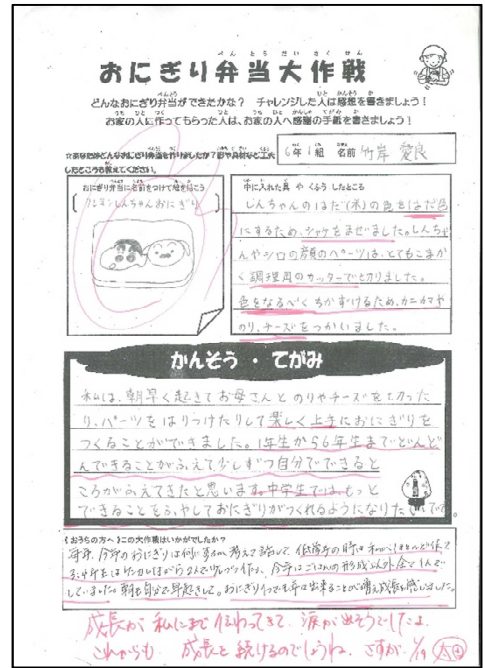 おにぎり弁当大作戦
どんなおにぎり弁当ができたかな？ チャレンジした人は感想を書きましょう！
お家の人に作ってもらった人は、お家の人へ感謝の手紙を書きましょう！
6年1組 名前 竹岸 愛良
☆あなたはどんなおにぎり弁当を作りましたか？形や具材など工夫
したところも教えてください。
おにぎり弁当に名前をつけて絵を描こう
クレヨンしんちゃんおにぎり
中に入れた具 や くふう したところ
しんちゃんのはだ(米)の色をはだ色
にするため、シャケをまぜました。しんちゃ
んやシロの顔のパーツは、とてもこまか
く調理用のカッターで切りました。
色をなるべくちかずけるため、カニカマや
のり、チーズをつかいました。
かんそう・てがみ
私は、朝早く起きてお母さんとのりやチーズを切った
り、パーツをはりつけたりして楽しく上手におにぎりを
つくることができました。1年生から6年生までどんど
んできることがふえて少しずつ自分でできると
ころがふえてきたと思います。中学生では、もっと
できることをふやしておにぎりがつくれるようになりたいです。
【おうちの方へ】この大作戦はいかがでしたか？
毎年、今年のおにぎりは何に考えて話して、低学年の時は
今年はごはんの形成以外全て1人で
していました。朝も自分で早起きして。おにぎり1つでも年々出来ることが増え成長を感じました。
成長が私にまで伝わってきて、涙が出そうでしたよ。
これからも 成長と続けるのでしょうね。さすが 1/9